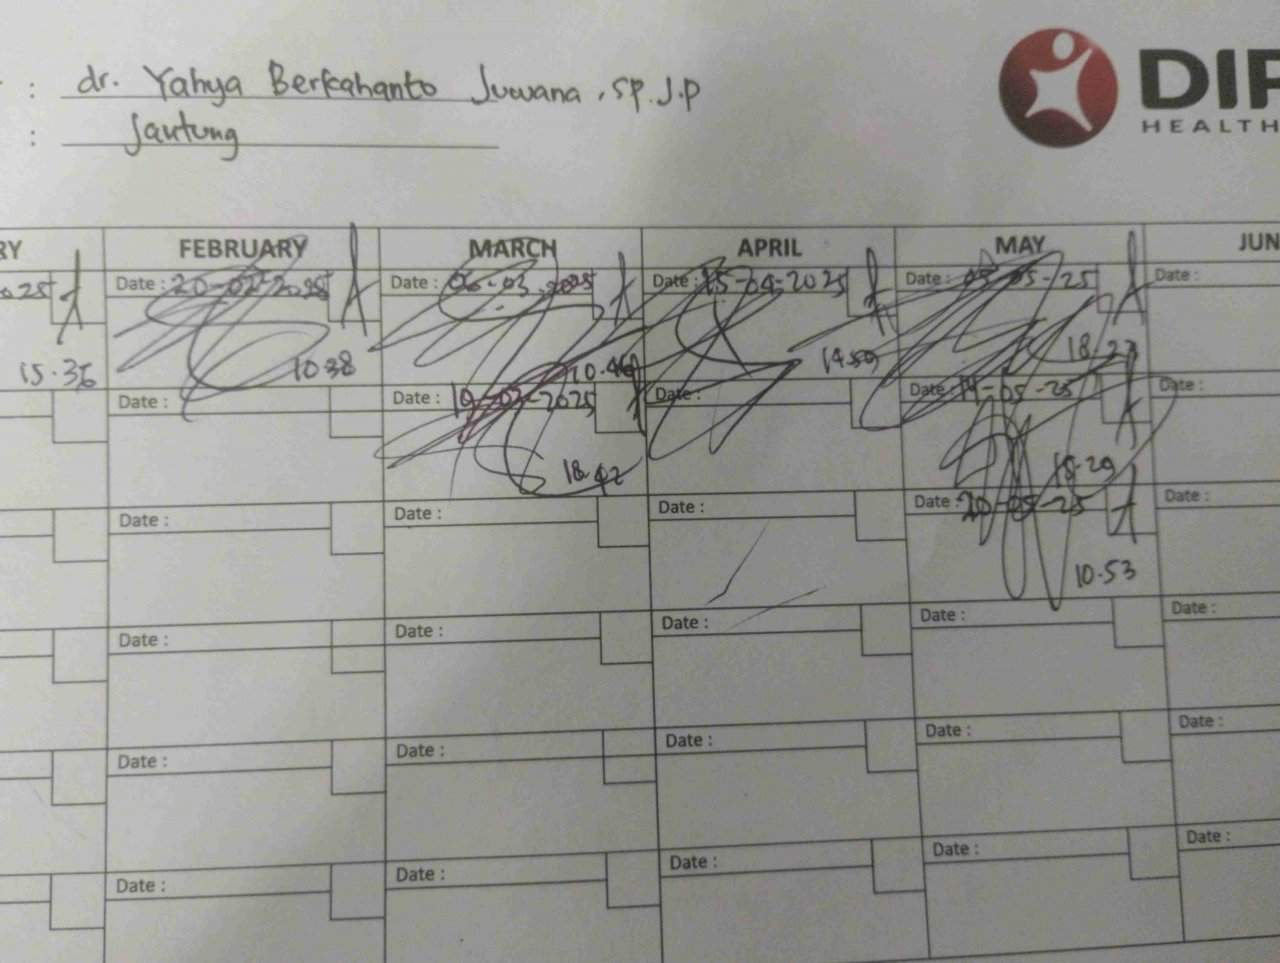 : dr. Yahya Berkahanto Juwana, SP.J.P
: Jantung
DIP
HEALTH
RY FEBRUARY MARCH APRIL MAY JUN
025 Date : 20-02-2025 Date : 06-03-2025 Date : 15-04-2025 Date : 05-05-25 Date :
15.36 10.38 10.46 14.59 18.27
Date : Date : 10-03-2025 Date : Date : 14-05-25 Date :
18.42 18.29
Date : Date : Date : Date : 20-05-25 Date :
10.53
Date : Date : Date : Date : Date :
Date : Date : Date : Date : Date :
Date : Date : Date : Date : Date :